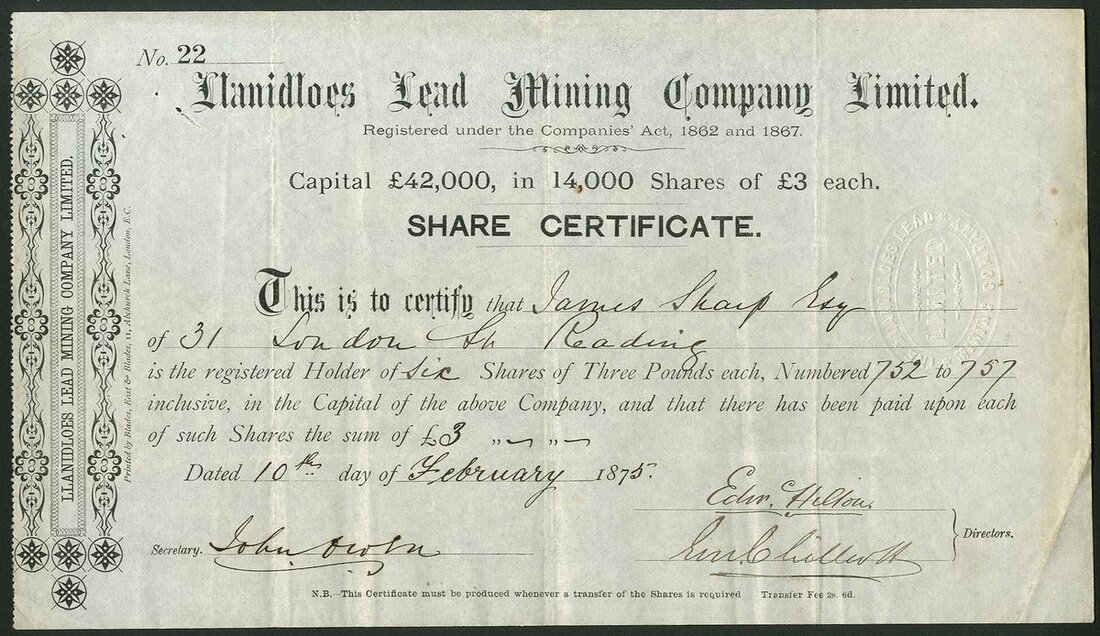 No. 22
Llanidloes Lead Mining Company Limited.
Registered under the Companies' Act, 1862 and 1867.
Capital £42,000, in 14,000 Shares of £3 each.
SHARE CERTIFICATE.
This is to certify that James Sharp Esq
of 31 London St Reading
is the registered Holder of six Shares of Three Pounds each, Numbered 752 to 757
inclusive, in the Capital of the above Company, and that there has been paid upon each
of such Shares the sum of £3 „ — „ —
Dated 10th day of February 1875.
Edw. Hilton.
Directors.
Secretary. John Owen
N.B.—This Certificate must be produced whenever a transfer of the Shares is required Transfer Fee 2s. 6d.
LLANIDLOES LEAD MINING COMPANY LIMITED.
Printed by Blades, East & Blades, 11, Abchurch Lane, London, E.C.
LLANIDLOES LEAD MINING COMPANY
LIMITED